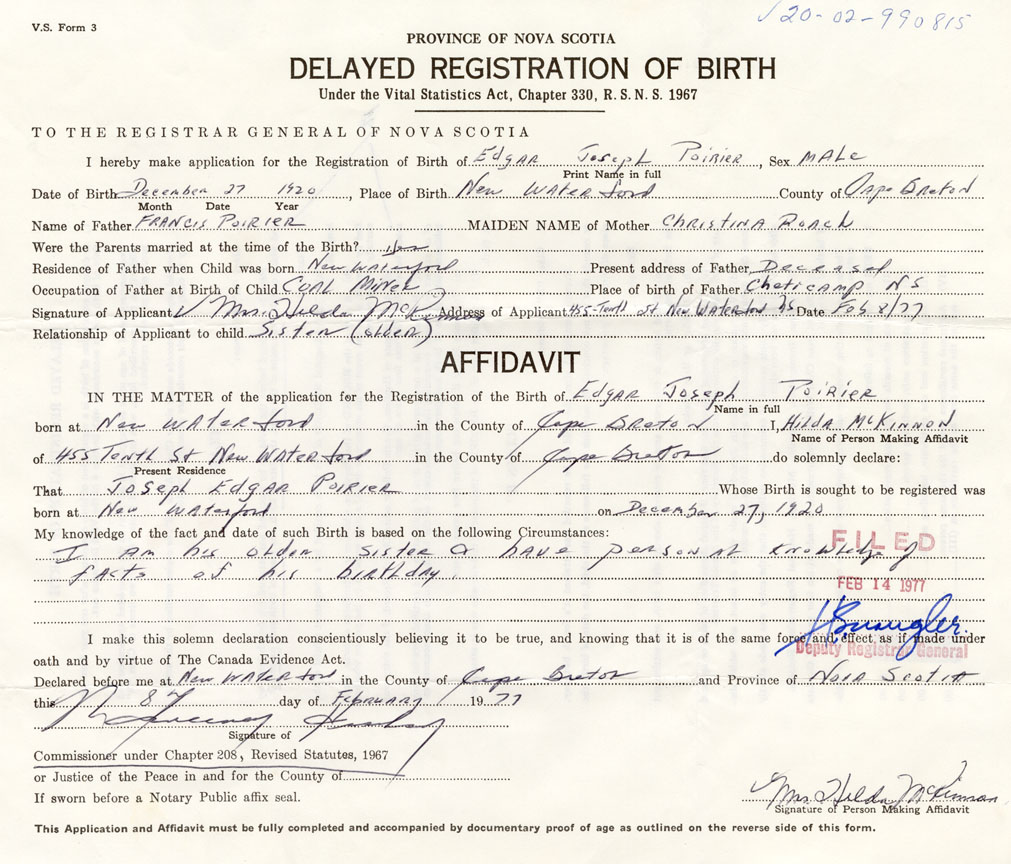 V.S. Form 3
√20-02-990815
PROVINCE OF NOVA SCOTIA
DELAYED REGISTRATION OF BIRTH
Under the Vital Statistics Act, Chapter 330, R.S.N.S. 1967
TO THE REGISTRAR GENERAL OF NOVA SCOTIA
I hereby make application for the Registration of Birth of Edgar Joseph Poirier, Sex Male
Print Name in full
Date of Birth December 27 1920, Place of Birth New Waterford County of Cape Breton
Month Date Year
Name of Father Francis Poirier MAIDEN NAME of Mother Christina Roach
Were the Parents married at the time of the Birth? yes
Residence of Father when Child was born New Waterford Present address of Father Deceased
Occupation of Father at Birth of Child Coal Miner Place of birth of Father Cheticamp NS
Signature of Applicant √ Mrs. Hilda McKinnon Address of Applicant 455-Tenth St New Waterford NS Date Feb 8/77
Relationship of Applicant to child Sister (older)
AFFIDAVIT
IN THE MATTER of the application for the Registration of the Birth of Edgar Joseph Poirier
Name in full
born at New Waterford in the County of Cape Breton I, Hilda McKinnon
Name of Person Making Affidavit
of 455 Tenth St New Waterford in the County of Cape Breton do solemnly declare:
Present Residence
That Joseph Edgar Poirier Whose Birth is sought to be registered was
born at New Waterford on December 27, 1920
My knowledge of the fact and date of such Birth is based on the following Circumstances:
I am his older sister & have personal knowledge of
facts of his birthday.
FILED
FEB 14 1977
Deputy Registrar General
I make this solemn declaration conscientiously believing it to be true, and knowing that it is of the same force and effect as if made under
oath and by virtue of The Canada Evidence Act.
Declared before me at New Waterford in the County of Cape Breton and Province of Nova Scotia
this 8th day of February 1977
Signature of
Commissioner under Chapter 208, Revised Statutes, 1967
or Justice of the Peace in and for the County of
If sworn before a Notary Public affix seal.
√ Mrs Hilda McKinnon
Signature of Person Making Affidavit
This Application and Affidavit must be fully completed and accompanied by documentary proof of age as outlined on the reverse side of this form.